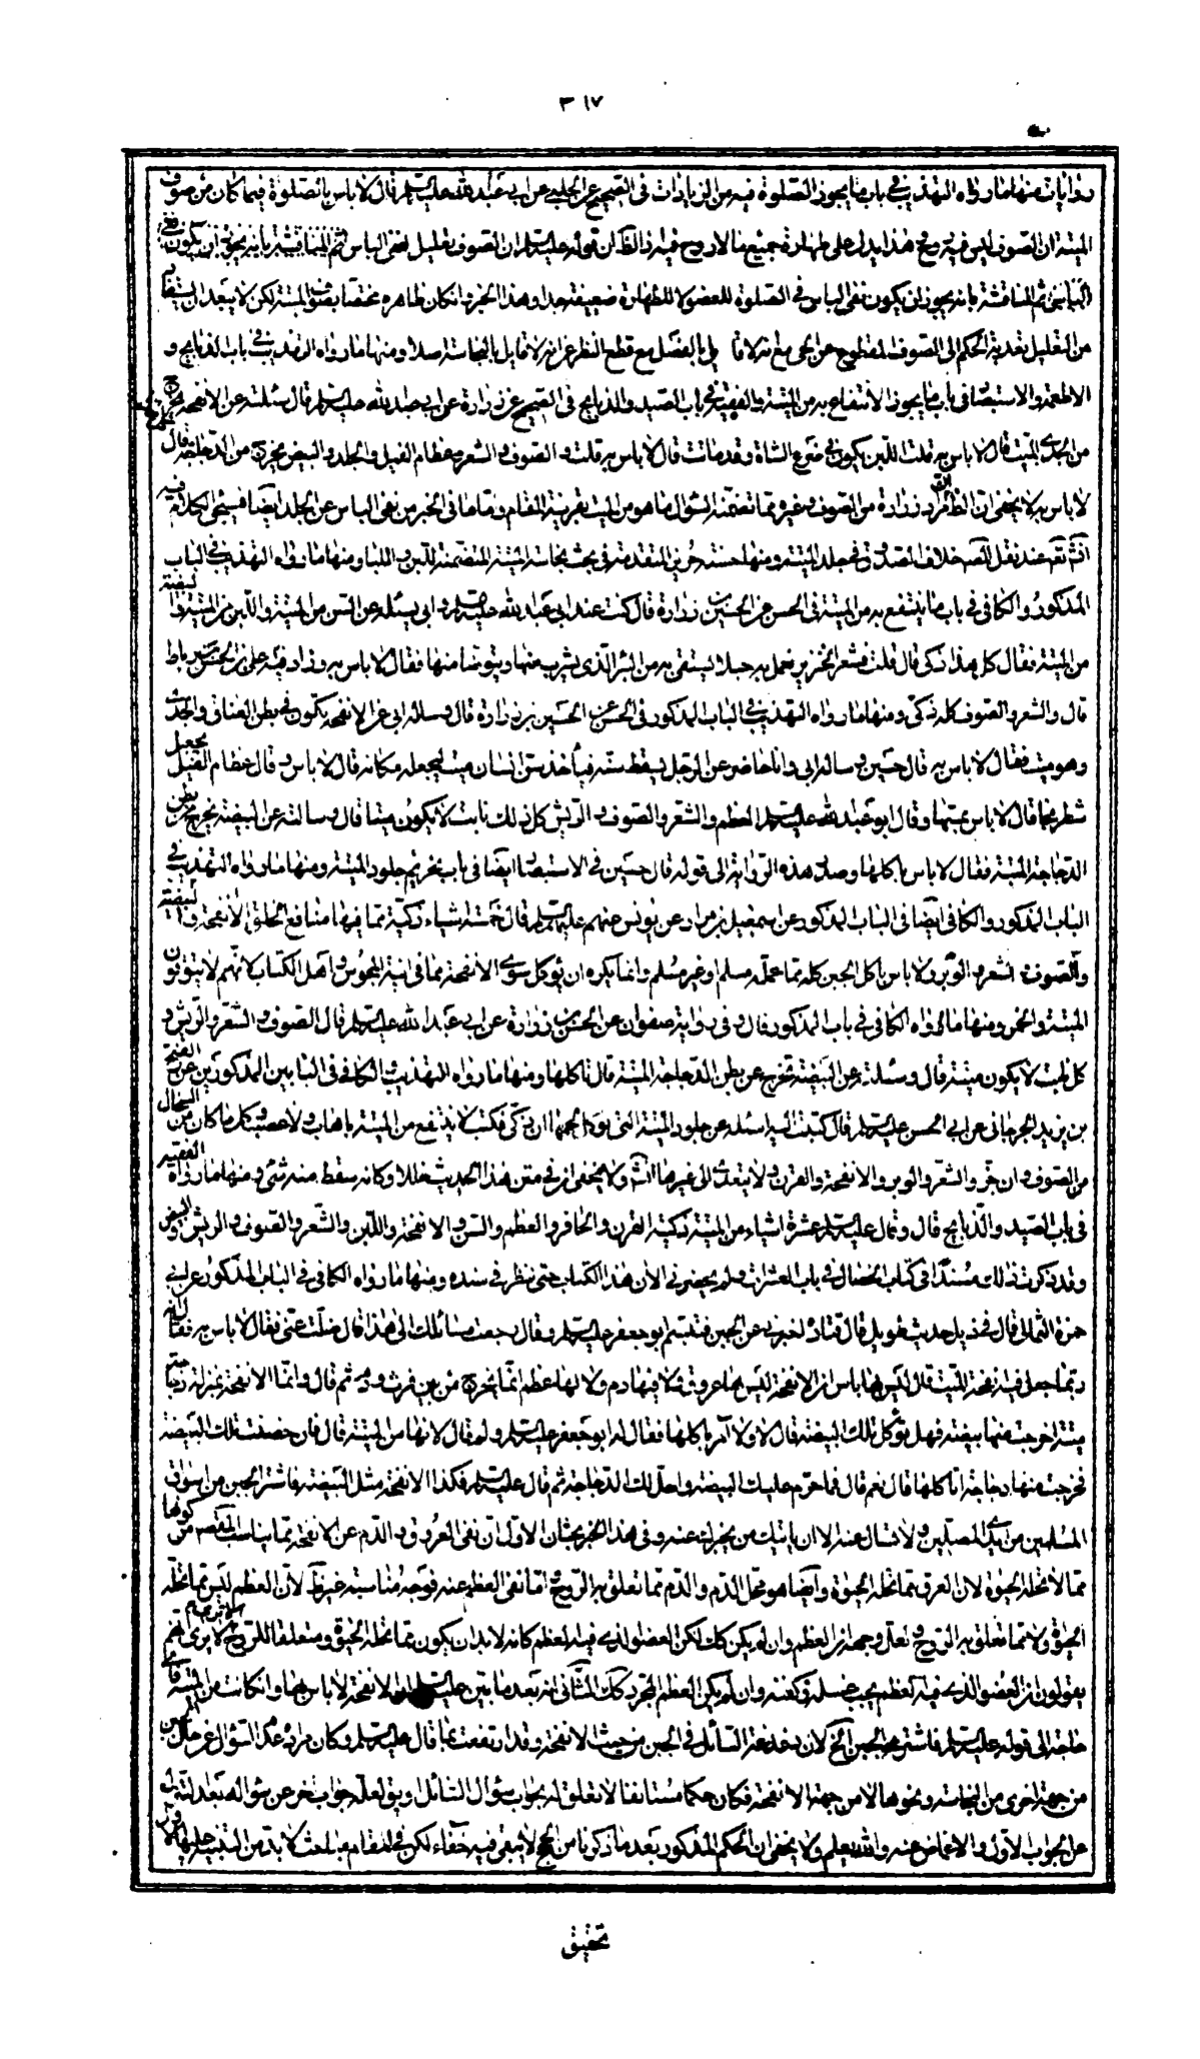 ٣١٧
روايات منها ما رواه التهذيب في باب ما يجوز الصلوة فيه من الزيادات في الصحيح عن الحلبي عن ابي عبد الله عليه السلم قال لا باس بالصلوة فيما كان من صوف
الميتة ان الصوف ليس فيه روح هذا يدل على طهارة جميع ما لا روح فيه اذ الظ ان قوله عليه السلم ان الصوف تعليل لنفي الباس ثم المناقشة بانه يجوز ان يكون
ثم المناقشة بانه يجوز ان يكون نفي الباس في الصلوة للعضو لا للطهارة ضعيفة جدا وهذا الخبر وان كان ظاهره مختصا بصوف الميتة لكن لا يبعد ان يستفاد
من التعليل تعدية الحكم الى الصوف المقطوع عن الحي مع انه لا قايل بالفصل مع قطع النظر عن انه لا قايل بالنجاسة اصلا ومنها ما رواه التهذيب في باب الذبايح و
الاطعمة والاستبصار في باب ما يجوز الانتفاع به من الميتة والفقيه في باب الصيد والذبايح في الصحيح عن زرارة عن ابي عبد الله عليه السلم قال سئلته عن الانفحة تخرج
من الجدي الميت قال لا باس به قلت اللبن يكون في ضرع الشاة وقد ماتت قال لا باس به قلت والصوف والشعر وعظام الفيل والجلد والبيض يخرج من الدجاجة قال
لا باس به لا يخفى ان الظ مراد زرارة من الصوف وغيره مما تضمنه السؤال ما هو من الميت بقرينة المقام واما ما في الخبر من نفي الباس عن الجلد ايضا فسيجئ الكلام فيه
انشاء الله تع عند نقل المص خلاف الصدوق في جلد الميتة ومنها حسنة حريز المتقدمة في بحث نجاسة الميتة المتضمنة للبن واللبا ومنها ما رواه التهذيب في الباب
المذكور والكافي في باب ما ينتفع به من الميتة في الحسن عن الحسين بن زرارة قال كنت عند ابي عبد الله عليه السلم وابي يسئله عن السن من الميتة واللبن من الميتة والبيضة
من الميتة فقال كل هذا ذكي قال قلت فشعر الخنزير يعمل به حبلا يستقى به من البئر الذي يشرب منها ويتوضا منها فقال لا باس به وزاد فيه علي بن الحسن بن رباط
قال والشعر والصوف كله ذكي ومنها ما رواه التهذيب في الباب المذكور في الحسن عن الحسين بن زرارة قال وسئله ابي عن الانفحة يكون في بطن العناق والجدي
وهو ميت فقال لا باس به قال حسين وساله ابي وانا حاضر عن الرجل يسقط سنه فيأخذ سن انسان ميت فيجعله مكانه قال لا باس وقال عظام الفيل يجعل
شطرنجا قال لا باس بمسها وقال ابو عبد الله عليه السلم العظم والشعر والصوف والريش كل ذلك نابت لا يكون ميتا قال وسالته عن البيضة يخرج من بطن
الدجاجة الميتة فقال لا باس باكلها وصدر هذه الرواية الى قوله قال حسين في الاستبصار ايضا في باب تحريم جلود الميتة ومنها ما رواه التهذيب في
الباب المذكور والكافي ايضا في الباب المذكور عن اسمعيل بن مرار عن يونس عنهم عليهم السلم قال خمسة اشياء ذكية مما فيها منافع الخلق الانفحة والبيضة
والصوف والشعر والوبر ولا باس باكل الجبن كله مما عمله مسلم او غير مسلم وانما يكره ان يؤكل سوى الانفحة مما في انية المجوس واهل الكتاب لانهم لا يتوقون
الميتة والخمر ومنها ما رواه الكافي في باب المذكور قال وفي رواية صفوان عن الحسين بن زرارة عن ابي عبد الله عليه السلم قال الصوف والشعر والريش و
كل نابت لا يكون ميتة قال وسئلته عن البيضة تخرج عن بطن الدجاجة الميتة قال تاكلها ومنها ما رواه التهذيب والكافي في البابين المذكورين عن الفتح
بن يزيد الجرجاني عن ابي الحسن عليه السلم قال كتبت اليه اسئله عن جلود الميتة التي يؤكل لحمها ان ذكي فكتب لا ينتفع من الميتة باهاب ولا عصب وكل ما كان من السخال
من الصوف وان جز والشعر والوبر والانفحة والقرن ولا يتعدى الى غيرها انشاء الله ولا يخفى ان في متن هذا الحديث خللا وكانه سقط منه شئ ومنها ما رواه الفقيه
في باب الصيد والذبايح قال وقال عليه السلم عشرة اشياء من الميتة ذكية القرن والحافر والعظم والسن والانفحة واللبن والشعر والصوف والريش والبيض
وقد ذكرت ذلك مسندا في كتاب الخصال في باب العشرات ولم يحضرني الان هذا الكتاب حتى نظر في سنده ومنها ما رواه الكافي في الباب المذكور عن ابي
حمزة الثمالي قال في ذيل حديث طويل قال قتادة اخبرني عن الجبن فتبسم ابو جعفر عليه السلم وقال رجعت مسائلك الى هذا قال ضلت عني فقال لا باس به فقال انه
ربما جعل فيه انفحة الميت قال ليس بها باس ان الانفحة ليس لها عروق ولا فيها دم ولا لها عظم انما يخرج من بين فرث ودم ثم قال وانما الانفحة بمنزلة دجاجة
ميتة اخرجت منها بيضة فهل تؤكل تلك البيضة قال لا ولا آمر باكلها فقال له ابو جعفر عليه السلم ولم قال لانها من الميتة قال فان حضنت تلك البيضة
فخرجت منها دجاجة اتاكلها قال نعم قال فما حرم عليك البيضة واحل لك الدجاجة ثم قال عليه السلم فكذا الانفحة مثل البيضة فاشتر الجبن من اسواق
المسلمين من ايدي المصلين ولا تسال عنه الا ان ياتيك من يخبرك عنه وفي هذا الخبر بحثان الاول ان نفي العروق والدم عن الانفحة مما يناسب المقصود من كونها
مما لا تحله الحيوة لان العرق مما تحله الحيوة وايضا هو محل الدم والدم مما تعلق به الروح اما نفي العظم عنه فوجه مناسبته غير ظ لان العظم ليس مما تحله
الحيوة ولا مما تعلق به الروح ولعل وجهه ان العظم وان لم يكن كك لكن العضو الذي فيه العظم كانه لا بد ان يكون مما تحله الحيوة ومتعلقا للروح الا يرى انهم
يقولون ان العضو الذي فيه العظم يجب غسله وكفنه وان لم يكن العظم المجرد كك الثاني انه بعد ما بين عليه السلم ان الانفحة لا باس بها وان كانت من الميتة فاي
حاجة الى قوله عليه السلم فاشتر الجبن الخ لان دغدغة السائل في الجبن من حيث الانفحة وقد ارتفعت بما قال عليه السلم وكان مراده عليه السلم السؤال عن حال الجبن
من جهة اخرى من النجاسة ونحوها لا من جهة الانفحة فكان حكما مستانفا لا تعلق له بجواب سؤال السائل او يق لعله جواب اخر عن سؤاله بعد التنزل
عن الجواب الاول والاغماض عنه والله يعلم ولا يخفى ان الحكم المذكور بعد ما ذكرنا من الحجج لا يبقى فيه خفاء لكن في المقام مباحث لا بد من التنبيه عليها الاول
تحقيق